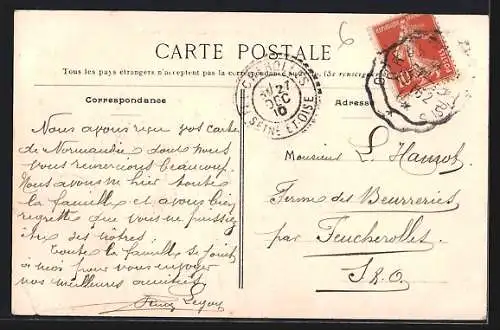 CARTE POSTALE
Tous les pays étrangers n'acceptent pas la correspondance
Correspondance
Adresse
FEUCHEROLLES
27
DEC
10
SEINE ET OISE
6
Nous avons reçu vos cartes
de Normandie dont nous
vous remercions beaucoup.
Nous avons eu hier toute
la famille et avons bien
regretté que vous ne puissiez
être des nôtres.
Toute la famille se joint
à moi pour vous envoyer
nos meilleures amitiés
Monsieur L. Hansot
Ferme des Beurreries
par Feucherolles
S&O.